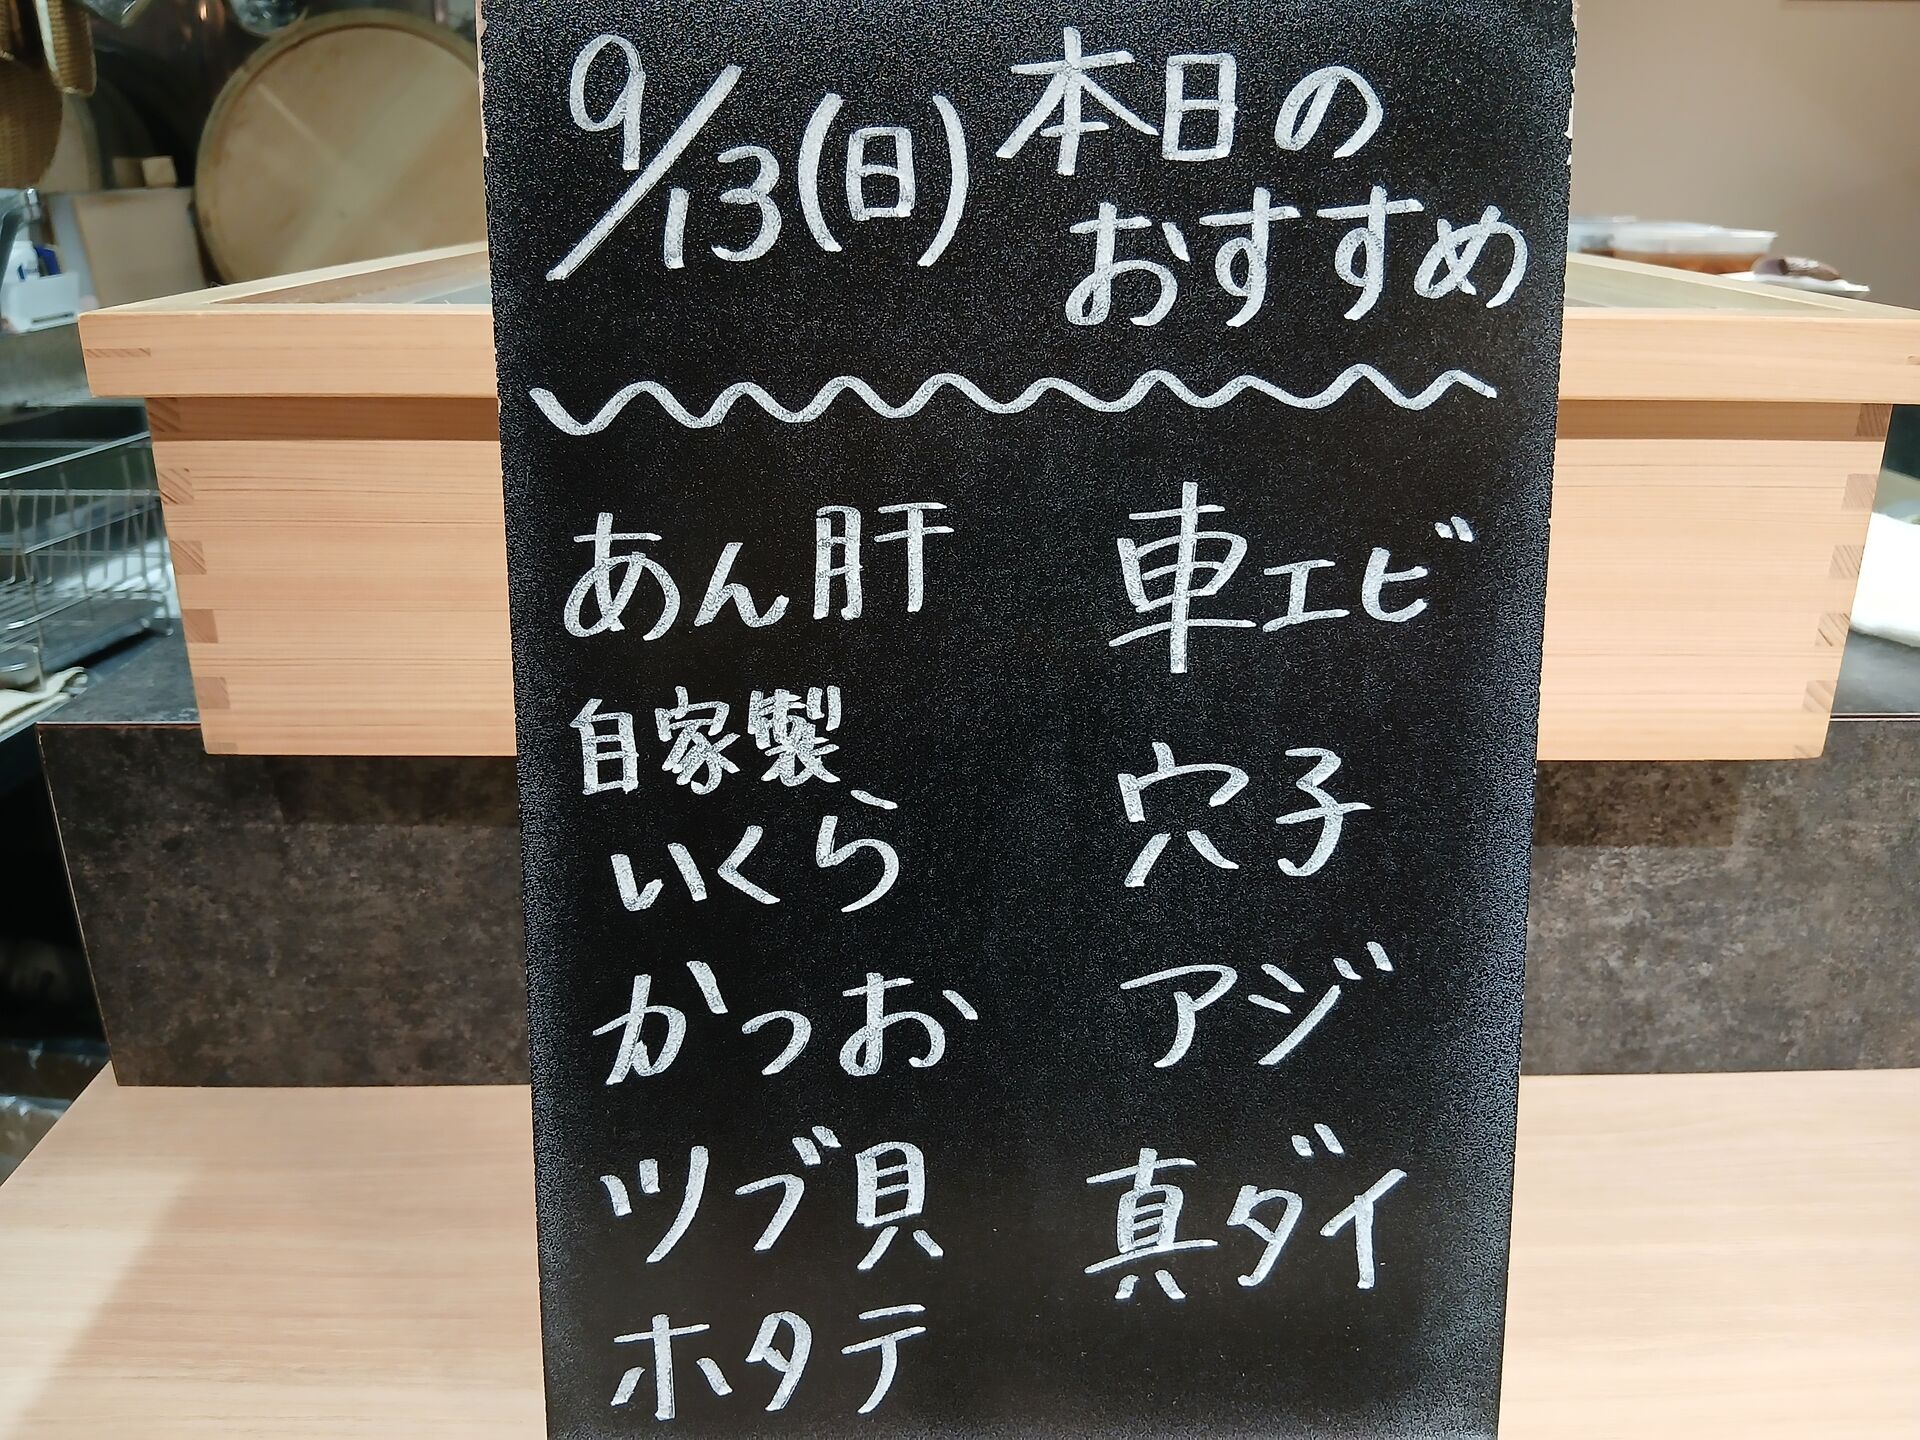 9/13(日) 本日の
おすすめ
あん肝
自家製
いくら
かつお
ツブ貝
ホタテ
車エビ
穴子
アジ
真ダイ